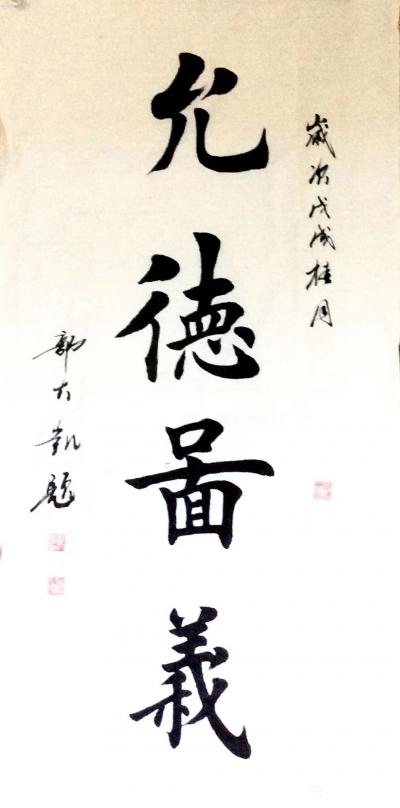 歲次戊戌桂月
允德啚義
郭大凱題